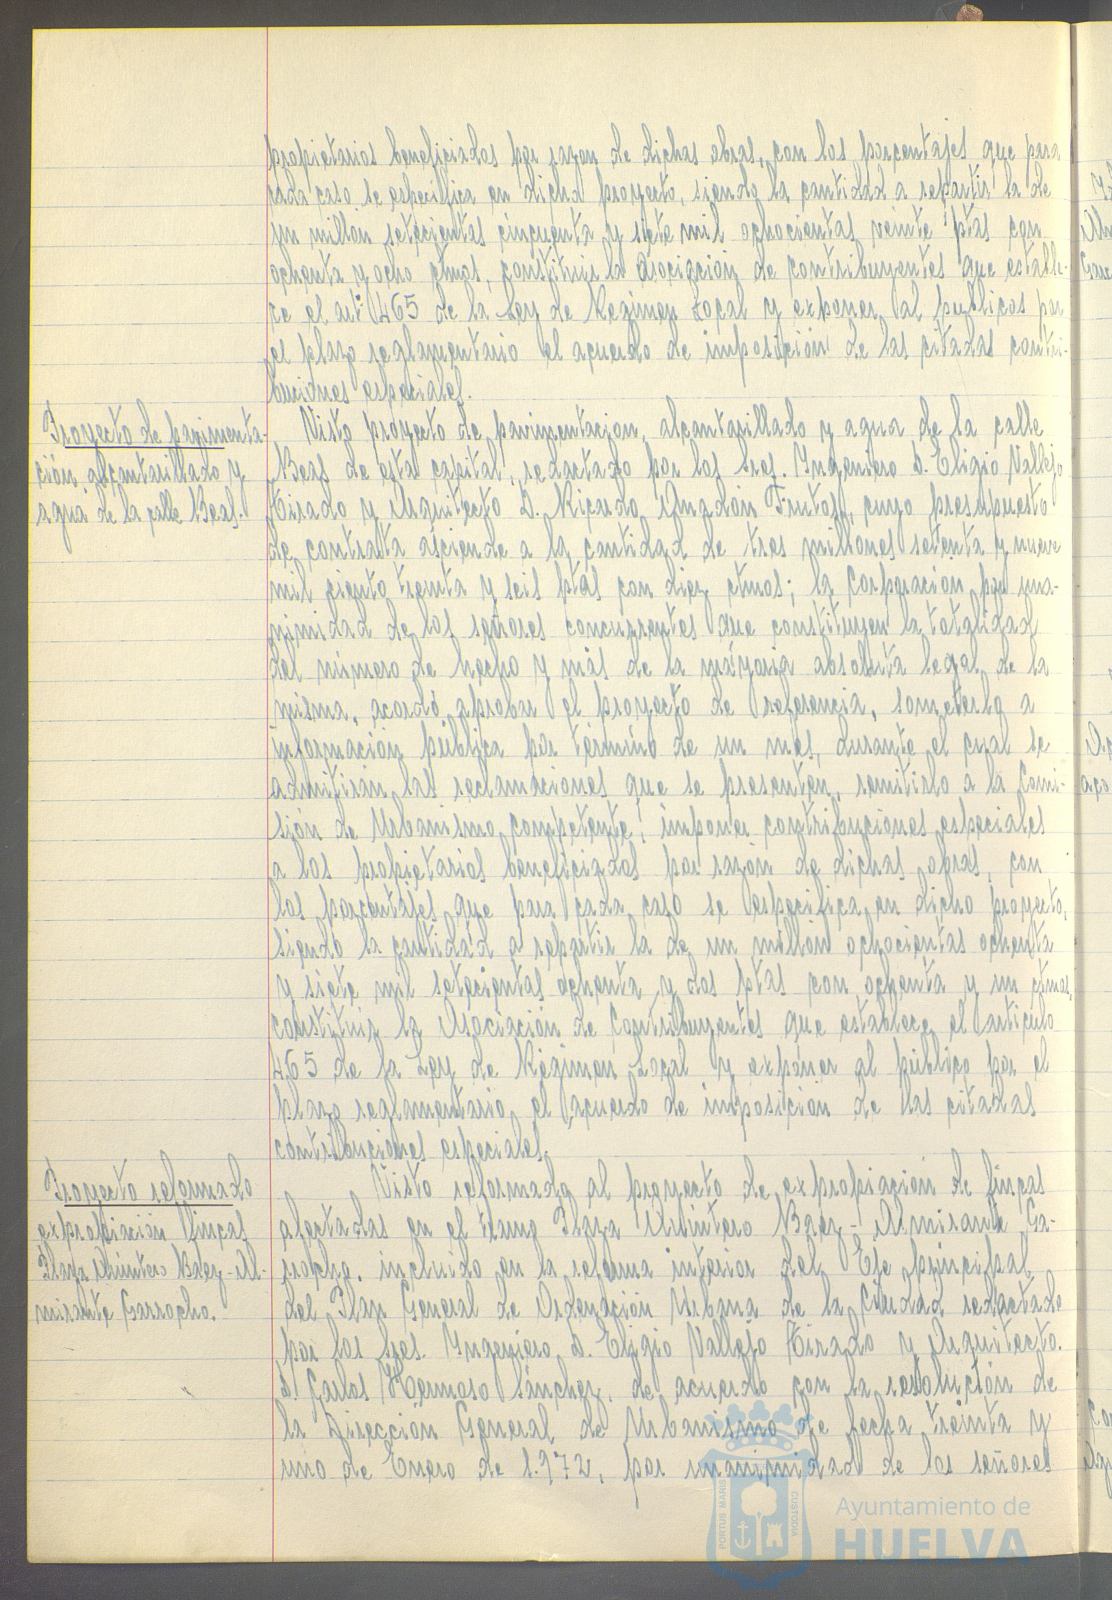 propietarios beneficiados por razon de dichas obras, con los porcentajes que para
cada caso se especifica en dicho proyecto, siendo la cantidad a repartir la de
un millon setecientas cincuenta y siete mil ochocientas veinte ptas con
ochenta y ocho ctmos, constituir la Asociación de contribuyentes que estable-
ce el artº 465 de la Ley de Regimen Local y exponer al publicos por
el plazo reglamentario el acuerdo de imposición de las citadas contri-
buciones especiales.
Proyecto de pavimenta-
ción alcantarillado y
agua de la calle Beas.
Visto proyecto de pavimentacion, alcantarillado y agua de la calle
Beas de esta capital, redactado por los Sres. Ingeniero D. Eligio Vallejo
Hirado y Arquitecto D. Ricardo Anadón Frutos, cuyo presupuesto
de contrata asciende a la cantidad de tres millones setenta y nueve
mil ciento treinta y seis ptas con diez ctmos; la Corporación por una-
nimidad de los señores concurrentes que constituyen la totalidad
del número de hecho y más de la mayoria absoluta legal de la
misma, acordó aprobar el proyecto de referencia, someterlo a
información pública por término de un mes, durante el cual se
admitiran las reclamaciones que se presenten, remitirlo a la Comi-
sión de Urbanismo competente, imponer contribuciones especiales
a los propietarios beneficiados por razón de dichas obras, con
los porcentajes que para cada caso se especifica en dicho proyecto,
siendo la cantidad a repartir la de un millón ochocientas ochenta
y siete mil setecientas ochenta y dos ptas con ochenta y un ctmos,
constituir la Asociación de Contribuyentes que establece el articulo
465 de la Ley de Régimen Local y exponer al público por el
plazo reglamentario el acuerdo de imposición de las citadas
contribuciones especiales.
Proyecto reformado
expropiación fincas
Plaza Quintero Baez-Al-
mirante Garrocho.
Visto reformado al proyecto de expropiación de fincas
afectadas en el tramo Plaza Quintero Baez-Almirante Ga-
rrocho, incluido en la reforma interior del Eje principal
del Plan General de Ordenación Urbana de la Ciudad redactado
por los Sres. Ingeniero D. Eligio Vallejo Hirado y Arquitecto.
D. Carlos Hermoso Sánchez, de acuerdo con la resolución de
la Dirección General de Urbanismo de fecha treinta y
uno de Enero de 1.972, por unanimidad de los señores
PORTUS MARIS
CUSTODIA
Ayuntamiento de
HUELVA